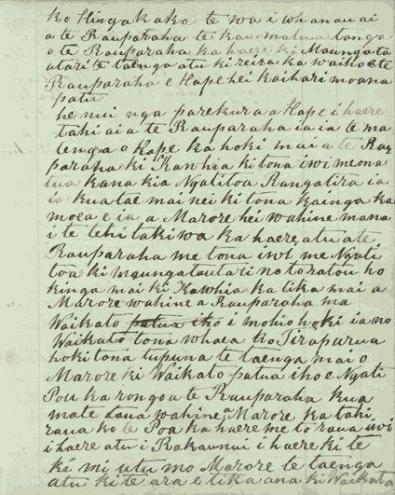 ko Hingakaka te wa i whanau ai
a te Rauparaha te kaumatua tonga
o te Rauparaha ka haere ki Maungata
atari te taenga atu ki reira ka waiho e te
Rauparaha e Hape hei kaihari moana
patu
he nui nga parekura a Hape i haere
tahi ai a te Rauparaha ia ia te ma
tenga o Hape ka hoki mai a te Rau
paraha ki Kawhia ki tona iwi me ona
tuakana kia Ngatitoa Rangatira ia
ia kua tae mai nei ki tona kainga ka
moea e ia a Marore hei wahine mana
i te tehi takiwa ka haere atu a te
Rauparaha me tona iwi me Ngati
toa ki Mgungatautari no to ratou ho
kinga mai ki Kawhia ka tika mai a
Marore wahine a Rauparaha ma
Waikato patua iho i mohio hoki ia no
Waikato tona whaea ko Tirapurua
hoki tona tupuna te taenga mai o
Marore ki Waikato patua iho e Ngati
Pou ka rongo a te Rauparaha kua
mate tana wahine a Marore ka tahi
raua ko te Poa ka haere me to raua iwi
i haere atu i Rakaunui i haere ki te
ki mi utu mo Marore te taenga
atu ki te ara e tika ana ki Waikato